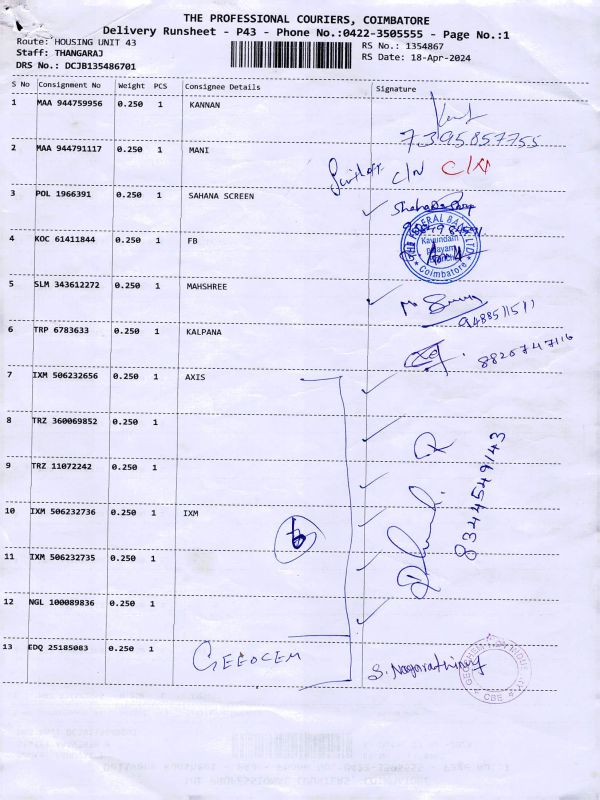 THE PROFESSIONAL COURIERS, COIMBATORE
Delivery Runsheet - P43 - Phone No.:0422-3505555 - Page No.:1
Route: HOUSING UNIT 43
RS No.: 1354867
Staff: THANGARAJ
RS Date: 18-Apr-2024
DRS No.: DCJB135486701
S No Consignment No Weight PCS Consignee Details Signature
1 MAA 944759956 0.250 1 KANNAN
7395857755
2 MAA 944791117 0.250 1 MANI
C/N C/N
3 POL 1966391 0.250 1 SAHANA SCREEN
4 KOC 61411844 0.250 1 FB
THE FEDERAL BANK LTD
Kavundam
palayam
Coimbatore
5 SLM 343612272 0.250 1 MAHSHREE
9488511511
6 TRP 6783633 0.250 1 KALPANA
8820747116
7 IXM 506232656 0.250 1 AXIS
8 TRZ 360069852 0.250 1
9 TRZ 11072242 0.250 1
8344549143
10 IXM 506232736 0.250 1 IXM
6
11 IXM 506232735 0.250 1
12 NGL 100089836 0.250 1
13 EDQ 25185083 0.250 1 GEEOCEM
S. Nagarathinam
CBE